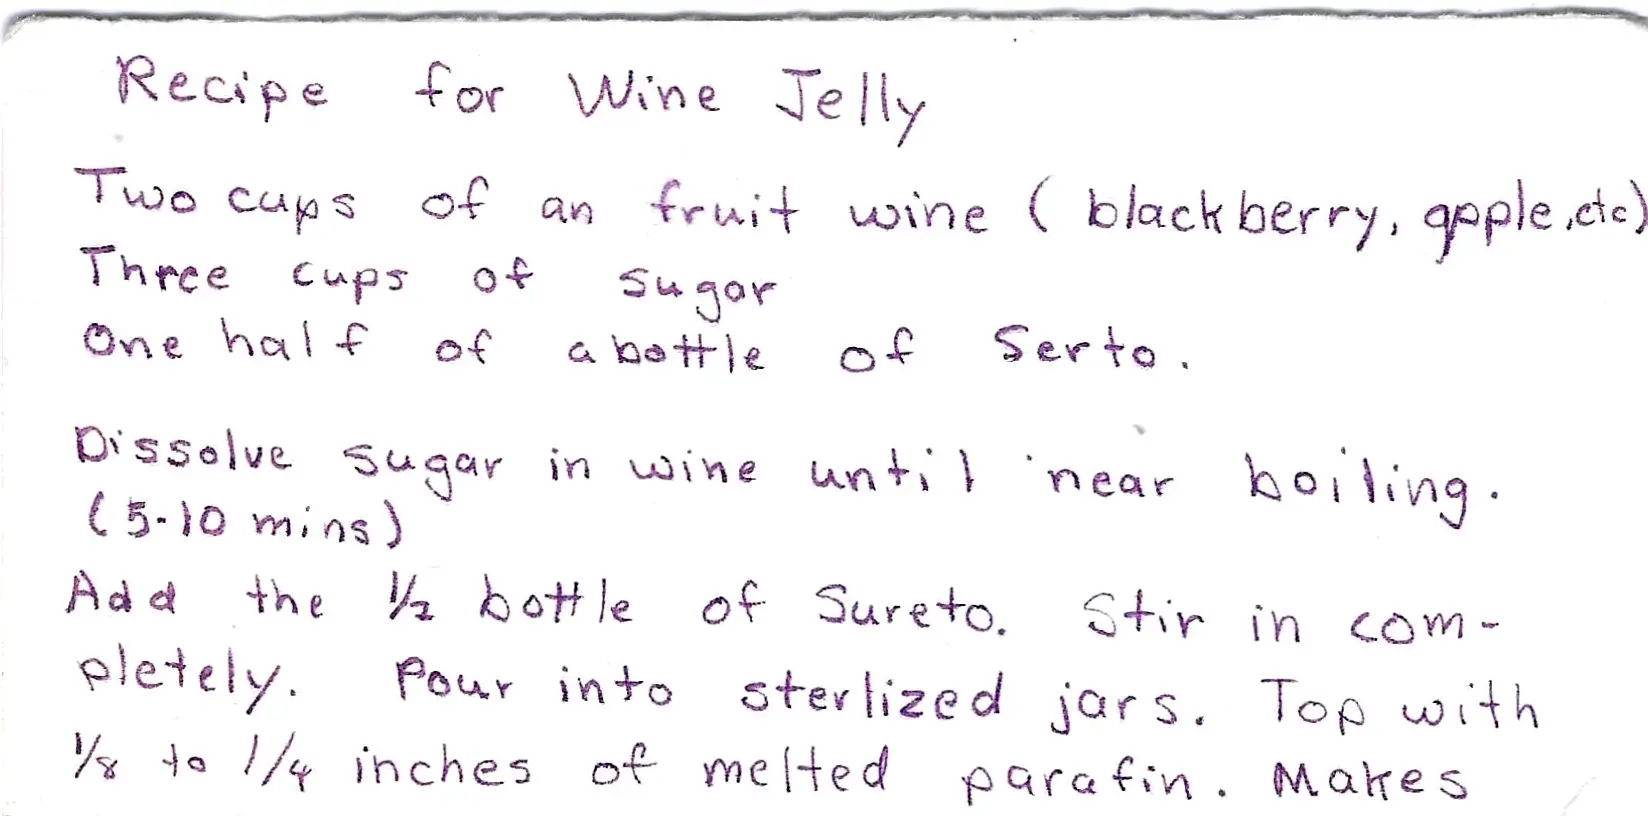 Recipe for Wine Jelly
Two cups of an fruit wine ( blackberry, apple, etc)
Three cups of sugar
One half of a bottle of Serto.
Dissolve sugar in wine until near boiling.
(5-10 mins)
Add the 1/2 bottle of Sureto. Stir in com-
pletely. Pour into sterlized jars. Top with
1/8 to 1/4 inches of melted parafin. Makes